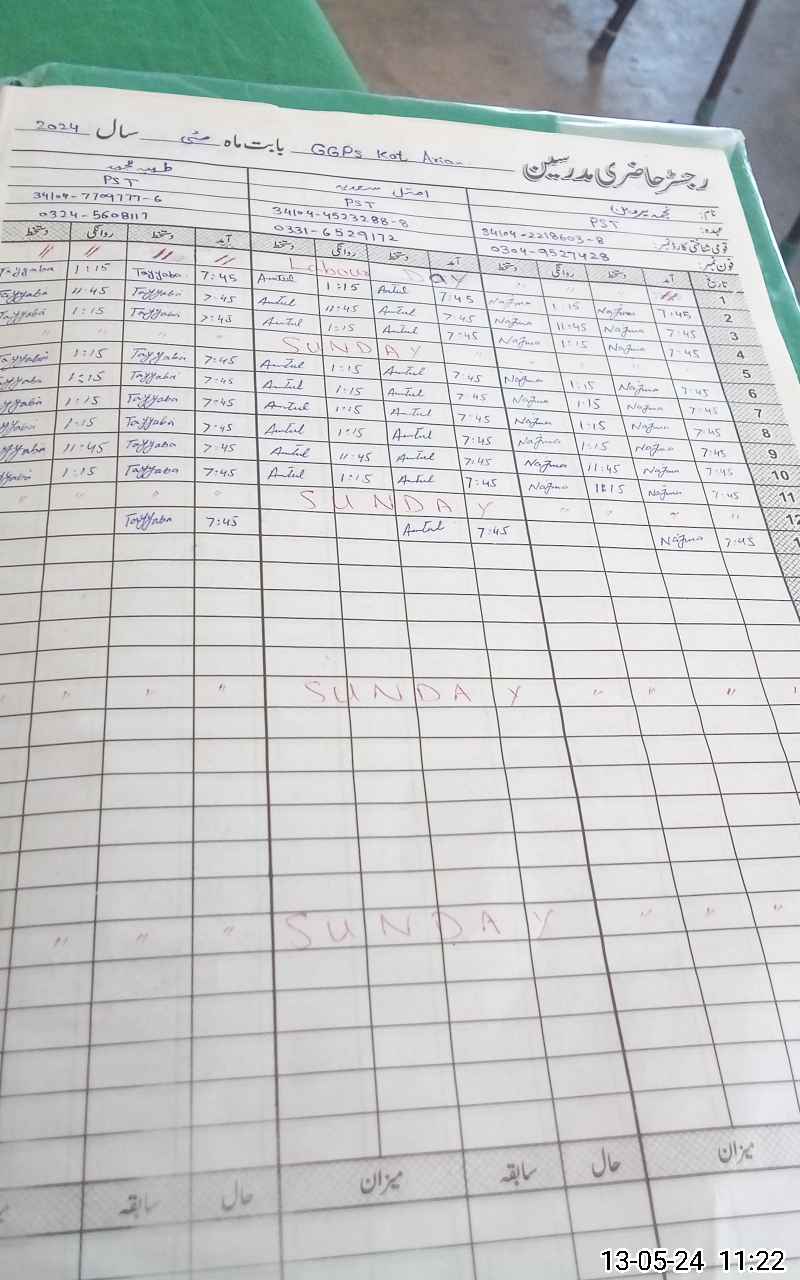 رجسٹر حاضری مدرسین GGPs Kot Arian بابت ماہ مئی سال 2024
نام: نجمہ پروین امتل سعدیہ طیبہ
عہدہ: PST PST PST
قومی شناختی کارڈ نمبر: 34104-2218603-8 34104-4523288-8 34104-7709777-6
فون نمبر: 0304-9527428 0331-6529172 0324-5608117
تاریخ آمد دستخط روانگی دستخط آمد دستخط روانگی دستخط آمد دستخط روانگی دستخط
1 〃 〃 〃 Labour Day 〃 〃 〃
2 7:45 Najma 1:15 Najma 7:45 Amtul 1:15 Amtul 7:45 Tayyaba 1:15 Tayyaba
3 7:45 Najma 11:45 Najma 7:45 Amtul 11:45 Amtul 7:45 Tayyaba 11:45 Tayyaba
4 7:45 Najma 1:15 Najma 7:45 Amtul 1:15 Amtul 7:45 Tayyaba 1:15 Tayyaba
5 〃 〃 〃 SUNDAY 〃 〃 〃
6 7:45 Najma 1:15 Najma 7:45 Amtul 1:15 Amtul 7:45 Tayyaba 1:15 Tayyaba
7 7:45 Najma 1:15 Najma 7:45 Amtul 1:15 Amtul 7:45 Tayyaba 1:15 Tayyaba
8 7:45 Najma 1:15 Najma 7:45 Amtul 1:15 Amtul 7:45 Tayyaba 1:15 Tayyaba
9 7:45 Najma 1:15 Najma 7:45 Amtul 1:15 Amtul 7:45 Tayyaba 1:15 Tayyaba
10 7:45 Najma 11:45 Najma 7:45 Amtul 11:45 Amtul 7:45 Tayyaba 11:45 Tayyaba
11 7:45 Najma 1:15 Najma 7:45 Amtul 1:15 Amtul 7:45 Tayyaba 1:15 Tayyaba
12 〃 〃 〃 〃 SUNDAY 〃 〃 〃 〃
7:45 Najma 7:45 Amtul 7:45 Tayyaba
〃 〃 〃 〃 SUNDAY 〃 〃 〃 〃
〃 〃 〃 SUNDAY 〃 〃 〃
میزان حال سابقہ میزان حال سابقہ
13-05-24 11:22